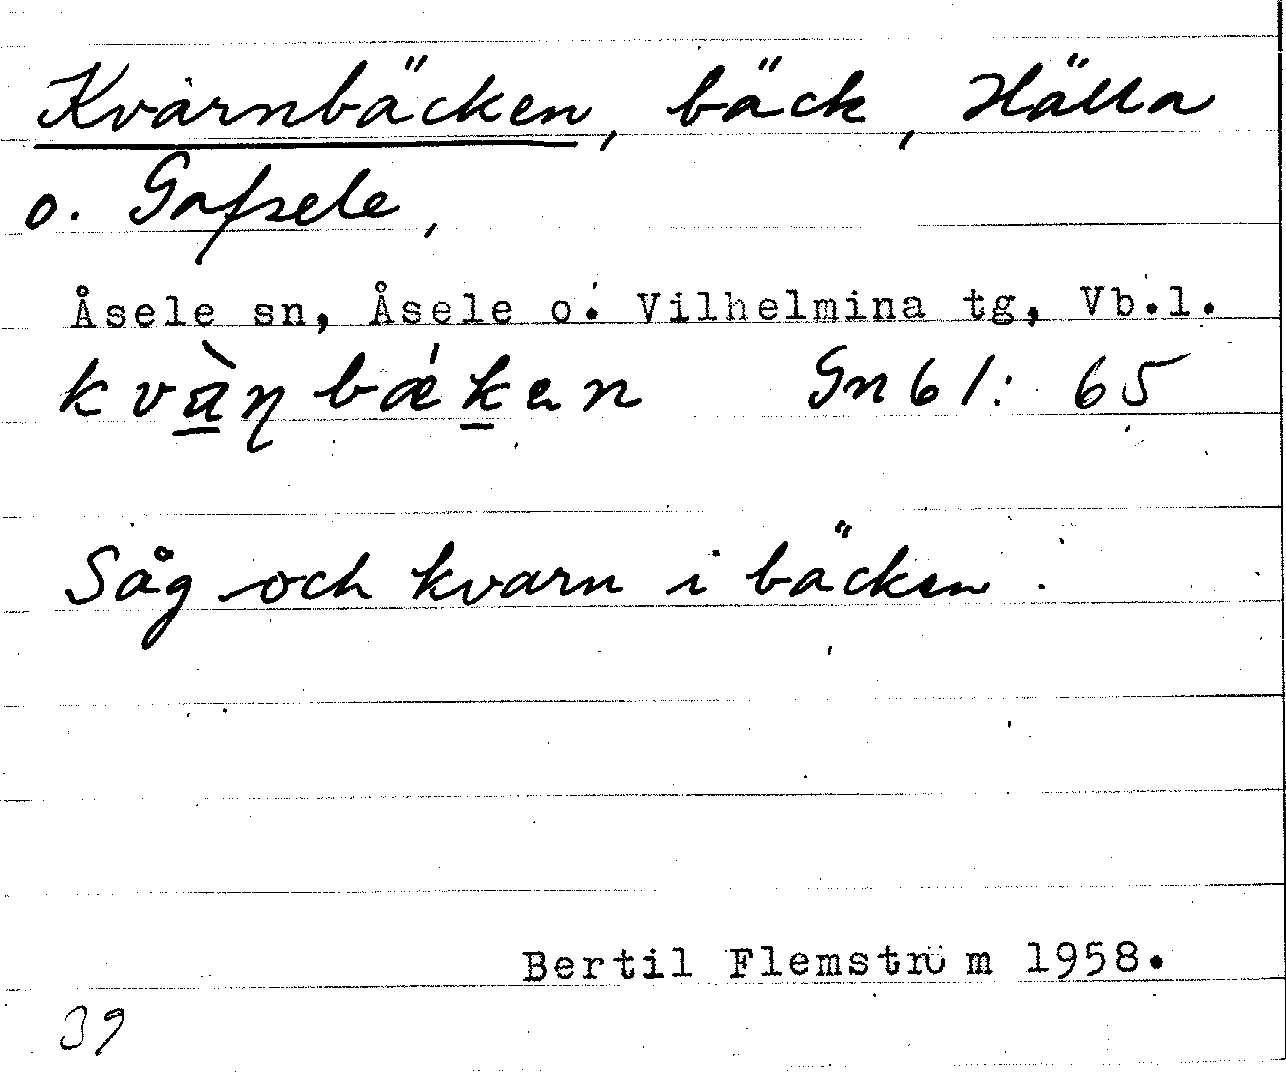 Kvarnbäcken, bäck, Hälla
o. Gafsele,
Åsele sn, Åsele o. Vilhelmina tg, Vb.l.
kvàɳbǽken Gn 61: 65
Såg och kvarn i bäcken.
Bertil Flemström 1958.
39